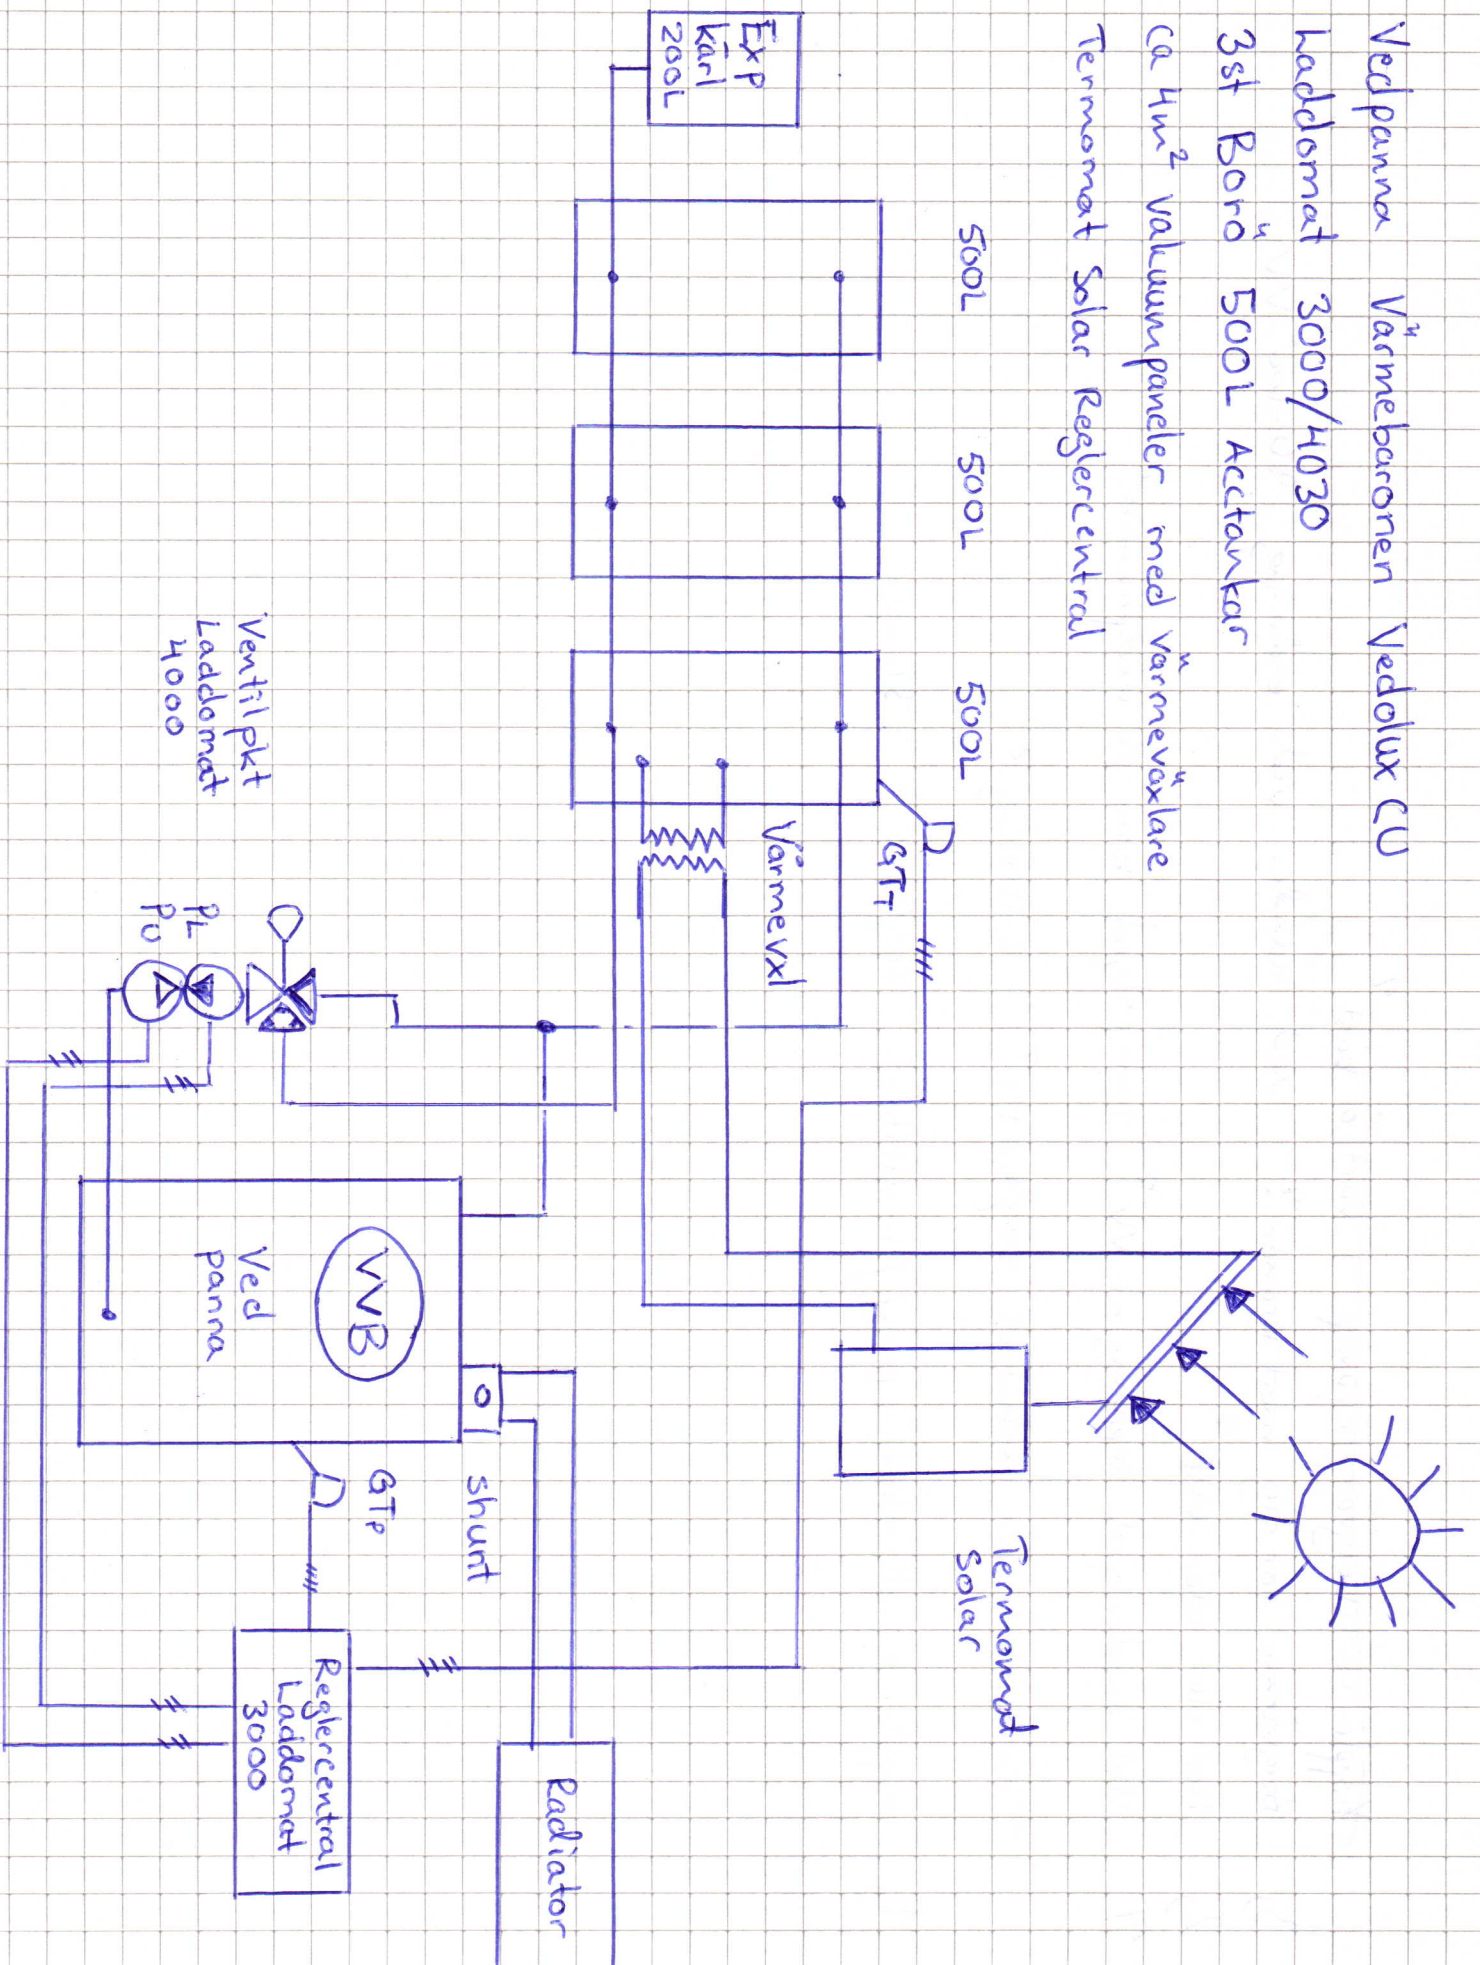 Vedpanna Värmebaronen Vedolux CU
Laddomat 3000/4030
3st Borö 500L Acctankar
ca 4m² Vakuumpaneler med värmeväxlare
Termomat Solar Reglercentral
Exp
Kärl
200L
500L
500L
500L
GTT
Värmevxl
Ventilpkt
Laddomat
4000
PL
PU
VVB
Ved
panna
shunt
GTP
Termomat
Solar
Reglercentral
Laddomat
3000
Radiator